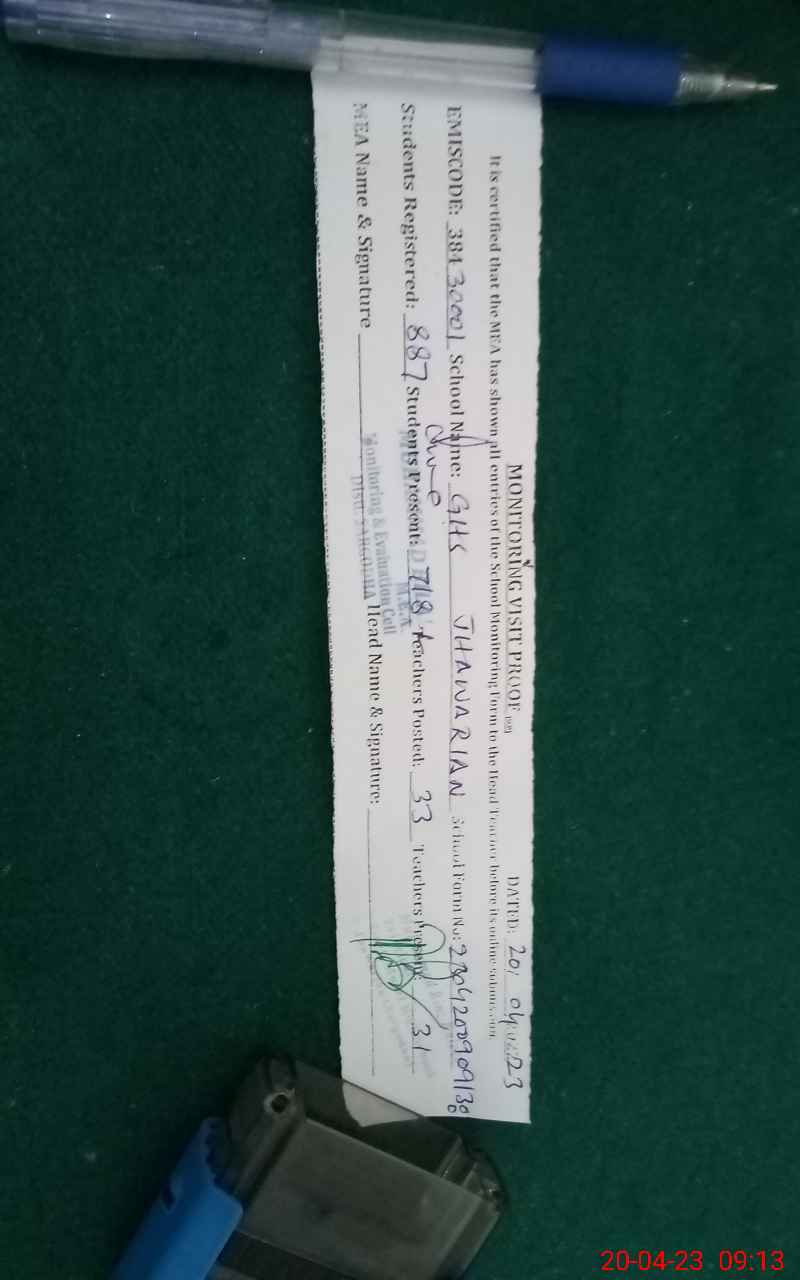 MONITORING VISIT PROOF
DATED: 20, 04, 2023
It is certified that the MEA has shown all entries of the School Monitoring Form to the Head Teacher before its online submission
EMISCODE: 38430001 School Name: GHS JHAWARIAN School Form No:
Students Registered: 887 Students Present: 718 Teachers Posted: 33 Teachers Present 31
MEA Name & Signature Head Name & Signature:
M.E.A.
Monitoring & Evaluation Cell
Distt. SARGODHA
20-04-23 09:13